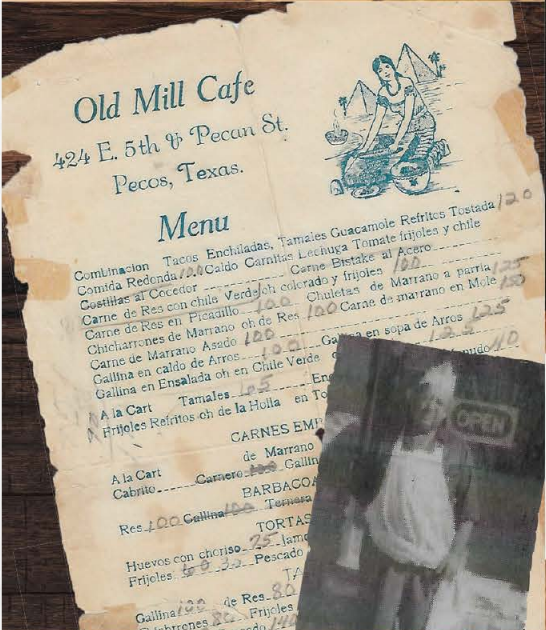 Old Mill Cafe
424 E. 5th & Pecan St.
Pecos, Texas.
Menu
Combinacion Tacos Enchiladas, Tamales Guacamole Refritos Tostada 120
Comida Redonda 100 Caldo Carnitas Lechuga Tomate frijoles y chile
Costillas al Cocedor Carne Bistake al Acero
Carne de Res con chile Verde oh colorado y frijoles 100
Carne de Res en Picadillo 100 Chuletas de Marrano a parria 125
Chicharrones de Marrano oh de Res 100 Carae de marrano en Mole 150
Carne de Marrano Asado 100
Gallina en caldo de Arros 100 en sopa de Arros 125
Gallina en Ensalada oh en Chile Verde 125
A la Cart Tamales 105 40
Frijoles Refritos oh de la Holla en
CARNES
A la Cart de Marrano
Cabrito Carnero 100
BARBACOA
Res 100 Gallina 100 Ternera
TORTAS
Huevos con choriso 75
Frijoles 35 Pescado
Gallina 100 de Res 80
80 Frijoles
140
OPEN